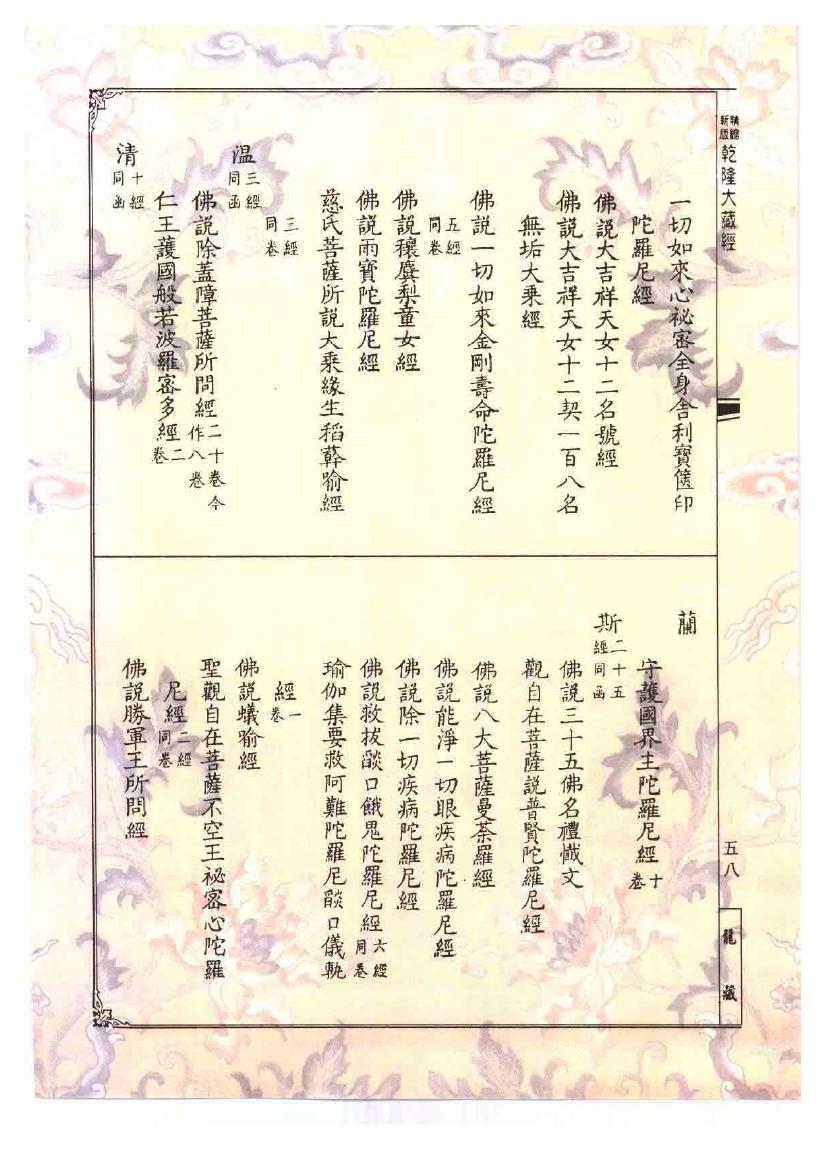 精縮新版乾隆大藏經
一切如來心祕密全身舍利寶篋印
陀羅尼經
佛說大吉祥天女十二名號經
佛說大吉祥天女十二契一百八名
無垢大乘經
佛說一切如來金剛壽命陀羅尼經
五經同卷
佛說穰麌梨童女經
佛說雨寶陀羅尼經
慈氏菩薩所說大乘緣生稻𦼮喻經
三經同卷
溫三經同函
佛說除蓋障菩薩所問經二十卷今作八卷
仁王護國般若波羅密多經二卷
清十經同函
蘭
守護國界主陀羅尼經十卷
斯二十五經同函
佛說三十五佛名禮懺文
觀自在菩薩說普賢陀羅尼經
佛說八大菩薩曼荼羅經
佛說能淨一切眼疾病陀羅尼經
佛說除一切疾病陀羅尼經
佛說救拔燄口餓鬼陀羅尼經六經同卷
瑜伽集要救阿難陀羅尼燄口儀軌
經一卷
佛說蟻喻經
聖觀自在菩薩不空王祕密心陀羅
尼經二經同卷
佛說勝軍王所問經
五八
龍藏